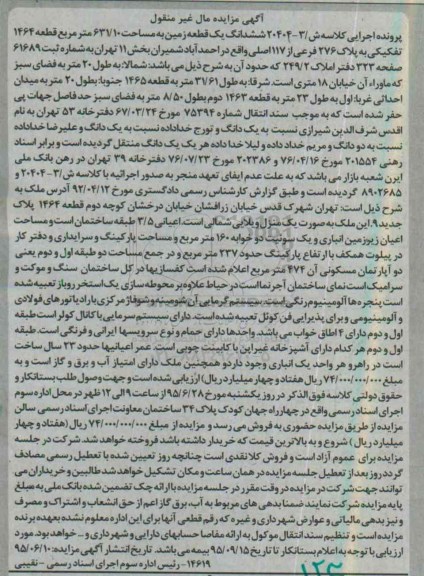 آگهی مزایده مال غیر منقول
پرونده اجرایی کلاسه ش/۲۰۴۰۴-۳ ششدانگ یک قطعه زمین به مساحت ۶۳۱/۱۰ متر مربع قطعه ۱۴۶۴
تفکیکی به پلاک ۲۷۶ فرعی از ۱۱۷ اصلی واقع در احمدآباد شمیران بخش ۱۱ تهران به شماره ثبت ۶۱۶۸۹
صفحه ۳۲۳ دفتر املاک ۲۴۹/۲ که حدود آن به شرح ذیل می باشد: شمالا: به طول ۲۰ متر به فضای سبز
که ماوراء آن خیابان ۱۸ متری است. شرقا: به طول ۳۱/۶۱ متر به قطعه ۱۴۶۵ جنوبا: بطول ۲۰ متر به میدان
احداثی غربا: اول به طول ۲۳ متر به قطعه ۱۴۶۳ دوم بطول ۸/۵۰ متر به فضای سبز حد فاصل جهات پی
حفر شده است که به موجب سند انتقال شماره ۷۵۳۹۴ مورخ ۶۷/۰۳/۲۴ دفترخانه ۵۳ تهران به نام
اقدس شرف الدین شیرازی نسبت به یک دانگ و تورج خداداده نسبت به یک دانگ و علیرضا خداداده
نسبت به دو دانگ و مریم خداد داده و لیلا خدا داده هر یک یک دانگ منتقل گردیده است و برابر اسناد
رهنی ۲۰۱۵۵۴ مورخ ۷۶/۰۴/۱۶ و ۲۰۲۳۸۶ مورخ ۷۶/۰۷/۲۳ دفترخانه ۳۹ تهران در رهن بانک ملی
ایران شعبه بازار می باشد که به علت عدم ایفای تعهد منجر به صدور اجرائیه با کلاسه ش/۲۰۴۰۴-۳ و
۸۹۰۲۶۸۵ گردیده است و طبق گزارش کارشناس رسمی دادگستری مورخ ۹۲/۰۴/۱۲ آدرس ملک به
شرح ذیل است: تهران شهرک قدس خیابان زرافشان خیابان درخشان کوچه دوم قطعه ۱۴۶۴ پلاک
جدید ۹. این ملک به صورت یک منزل ویلایی شمالی است. اعیانی ۳/۵ طبقه ساختمان است و مساحت
اعیان زیرزمین انباری و یک سوئیت دو خوابه ۱۶۰ متر مربع و مساحت پارکینگ و سرایداری و دفتر کار
در پیلوت همکف با ارتفاع پارکینگ حدود ۲۳۷ متر مربع و در جمع مساحت دو طبقه اول و دوم یعنی
دو آپارتمان مسکونی آن ۴۷۴ متر مربع اعلام شده است کفسازیها در کل ساختمان سنگ و موکت و
سرامیک است نمای ساختمان آجرنما است در حیاط علاوه بر محوطه سازی یک استخر روباز تعبیه شده
است پنجره ها آلومینیوم رنگی است. سیستم گرمایی آن شومینه و شوفاژ مرکزی با رادیاتورهای فولادی
و آلومینیومی و برای پذیرایی فن کوئل تعبیه شده است. دارای سیستم سرمایی با کانال کولر است طبقه
اول و دوم دارای ۴ اطاق خواب می باشد. واحدها دارای حمام و نوع سرویسها ایرانی و فرنگی است. طبقه
اول و دوم هر کدام دارای آشپزخانه غیر اپن با کابینت چوبی است. عمر اعیانیها حدود ۲۳ سال ساخت
است در راهرو هر واحد یک انباری وجود دارد و همچنین ملک دارای امتیاز آب و برق و گاز است و به
مبلغ ۷۴/۰۰۰/۰۰۰/۰۰۰ ریال هفتاد و چهار میلیارد ریال) ارزیابی شده است و جهت وصول طلب بستانکار و
حقوق دولتی کلاسه فوق الذکر در روز یکشنبه مورخ ۹۵/۶/۲۸ از ساعت ۹ الی ۱۲ ظهر در محل اداره سوم
اجرای اسناد رسمی واقع در چهارراه جهان کودک پلاک ۳۴ ساختمان معاونت اجرای اسناد رسمی سالن
مزایده از طریق مزایده حضوری به فروش می رسد و مزایده از مبلغ ۷۴/۰۰۰/۰۰۰/۰۰۰ ریال (هفتاد و چهار
میلیارد ریال ) شروع و به بالاترین قیمت که خریدار داشته باشد فروخته خواهد شد. شرکت در جلسه
مزایده برای عموم آزاد است و فروش کلا نقدی است چنانچه روز تعیین شده با تعطیل رسمی مصادف
گردد روز بعد از تعطیل جلسه مزایده در همان ساعت و مکان تشکیل خواهد شد طالبین و خریداران می
توانند جهت شرکت در مزایده در وقت مقرر در جلسه مزایده با ارائه چک تضمین شده بانک ملی به مبلغ
پایه مزایده شرکت نمایند ضمنا بدهی های مربوط به آب، برق گاز اعم از حق انشعاب و اشتراک و مصرف
و نیز بدهی مالیاتی و عوارض شهرداری و غیره که رقم قطعی آنها برای این اداره معلوم نشده بعهده برنده
مزایده است و تنظیم سند انتقال موکول به ارائه مفاصا حسابهای دارایی و شهرداری و... خواهد بود. مورد
ارزیابی با توجه به اعلام بستانکار تا تاریخ ۹۵/۰۹/۱۵ بیمه می باشد. تاریخ انتشار آگهی مزایده: ۹۵/۰۶/۱۰
۱۴۶۱۹- رئیس اداره سوم اجرای اسناد رسمی - نقیبی